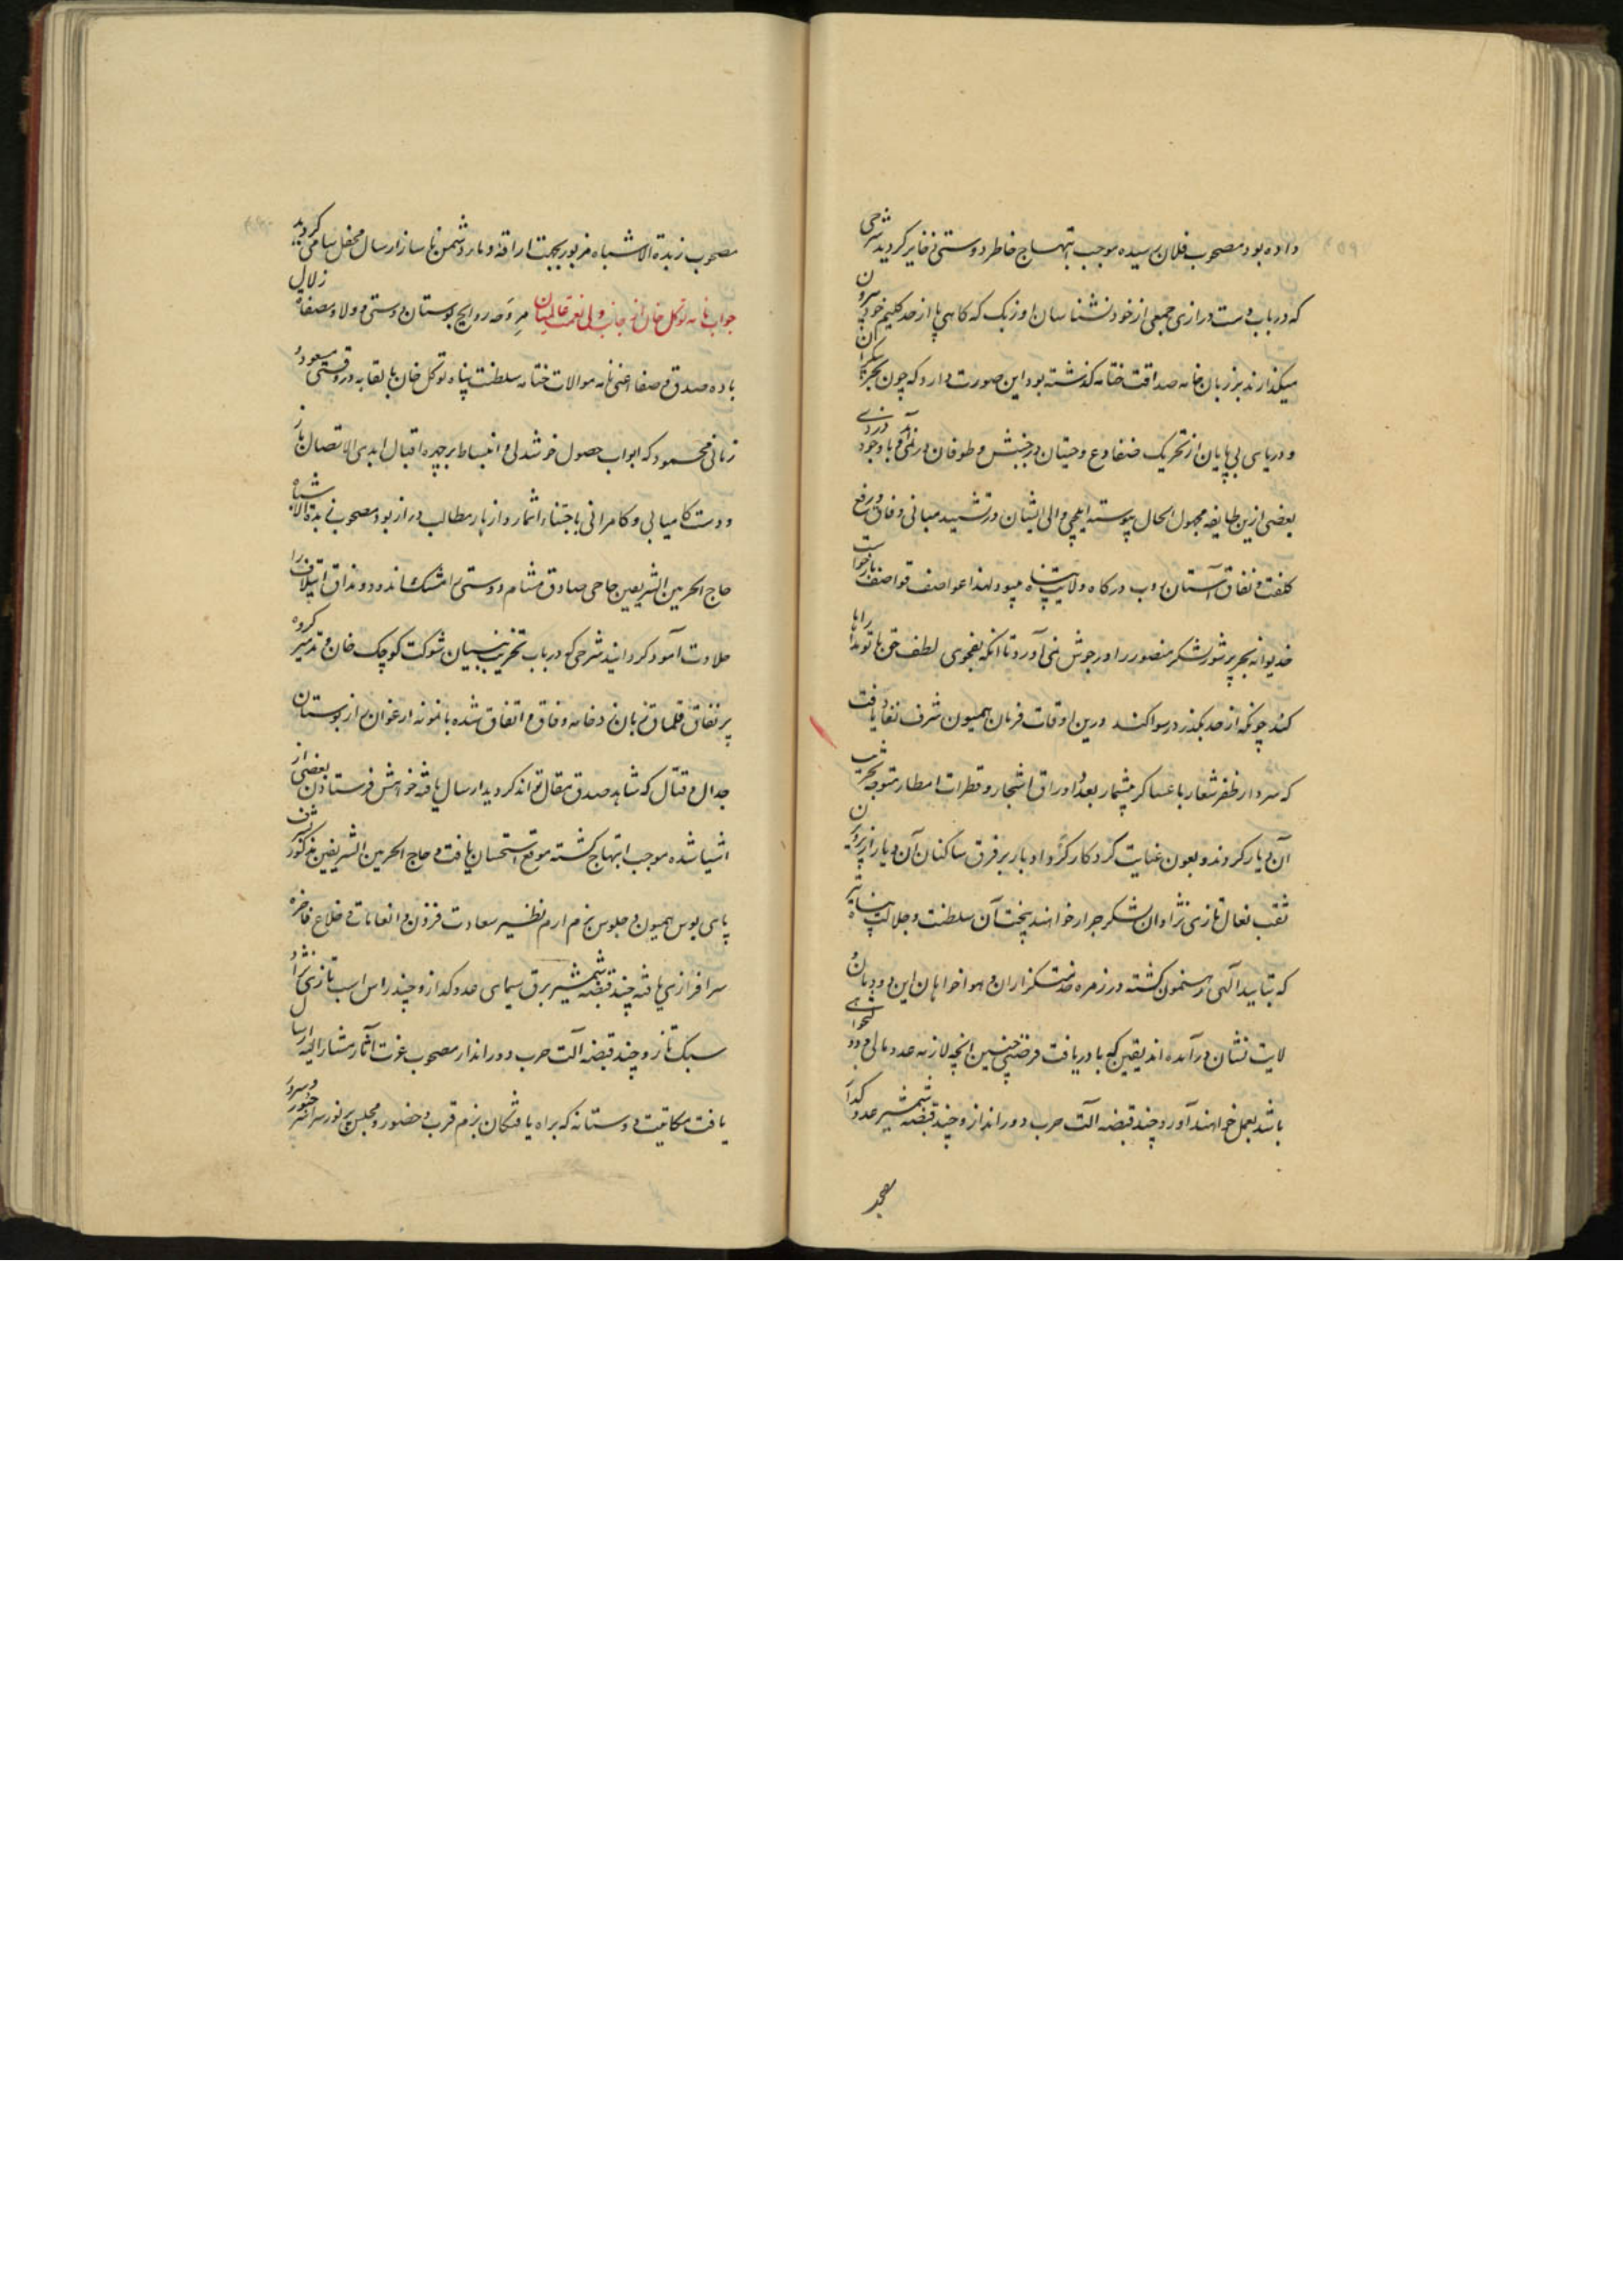 داده بود مصحوب فلان رسیده موجب ابتهاج خاطر دوستی ذخایر کردید شرحی
که در باب دست درازی جمعی از خود نشناسان اوزبک که کاهی پا از حد کلیم خود بیرون
میکذارند بر زبان خامه صداقت ختامه کذشته بود این صورت دارد که چون بحر بیکران
و دریای بی پایان از تحریک ضفادع و حیتان در جنبش و طوفان در نمی آید و با وجود
بعضی ازین طایفه مجهول الحال پیوسته ایلچی والی ایشان در تشیید مبانی وفاق و رفع
کلفت و نفاق آستان روب درکاه ولایت پناه میبود لهذا عواصف قواصف بازخواست
خدیوانه بحر پر شور لشکر منصور را در جوش نمی آورد تا آنکه بفحوی لطف حق با تو مداراها
کند چونکه از حد بکذرد رسوا کند درین اوقات فرمان همیون شرف نفاذ یافت
که سردار ظفر شعار با عساکر بیشمار بعدد اوراق اشجار و قطرات امطار متوجه تخریب
آن دیار کردند و بعون عنایت کردکار کرد ادبار بر فرق ساکنان آن دیار از پرویزن
ثقب نعال تازی نژادان لشکر جرار خواهند بیخت آن سلطنت و جلالت پناه نیز
که بتایید الهی رهنمون کشته در زمره خدمتکزاران و هواخواهان این دودمان
ولایت نشان در آمده اند یقین که با دریافت فرصتی چنین انچه لازمه عدو مالی و دولتخواهی
باشد بعمل خواهند آورد و چند قبضه آلت حرب دورانداز و چند قبضه شمشیر عدو کداز
مصحوب زبدة الاشباه مزبور بجهت اراقه دمار دشمن ناساز ارسال محفل سامی کردید
جواب نامه توکل خان از جانب ولی نعمت عالمیان مروحه روایح بوستان دوستی و ولا و مصفاه زلال
باده صدق و صفا اعنی نامه موالات ختامه سلطنت پناه توکل خان بالقابه در وقتی مسعود و
زمانی محمود که ابواب حصول خوشدلی و انبساط بر چهره اقبال ابدی الاتصال باز
و دست کامیابی و کامرانی باجتناء اثمار و ازهار مطالب دراز بود مصحوب زبدة الاشباه
حاج الحرمین الشریفین حاجی صادق مشام دوستی را مشک اندود و مذاق ائتلاف را
حلاوت آمود کردانید شرحی که در باب تخریب بنیان شوکت کوچک خان و تدمیر کروه
پر نفاق قلماق زبان زد خامه وفاق و اتفاق شده با نمونه ارغوان زار بوستان
جدال و قتال که شاهد صدق مقال تواند کردید ارسال یافته خواهش فرستادن بعضی از
اشیا شده موجب ابتهاج کشته موقع استحسان یافت و حاج الحرمین الشریفین مذکور بشرف
پای بوس همیون و جلوس بزم ارم نظیر سعادت قرون و انعامات و خلاع فاخره
سرافرازی یافته چند قبضه شمشیر برق سیمای عدو کداز و چند راس اسب تازی نژاد
سبک تاز و چند قبضه آلت حرب دورانداز مصحوب عزت آثار مشار الیه ارسال
یافت مکاتیب دوستانه که براه یافتکان بزم قرب و حضور و مجلس پر نور سراسر حبور و سرور